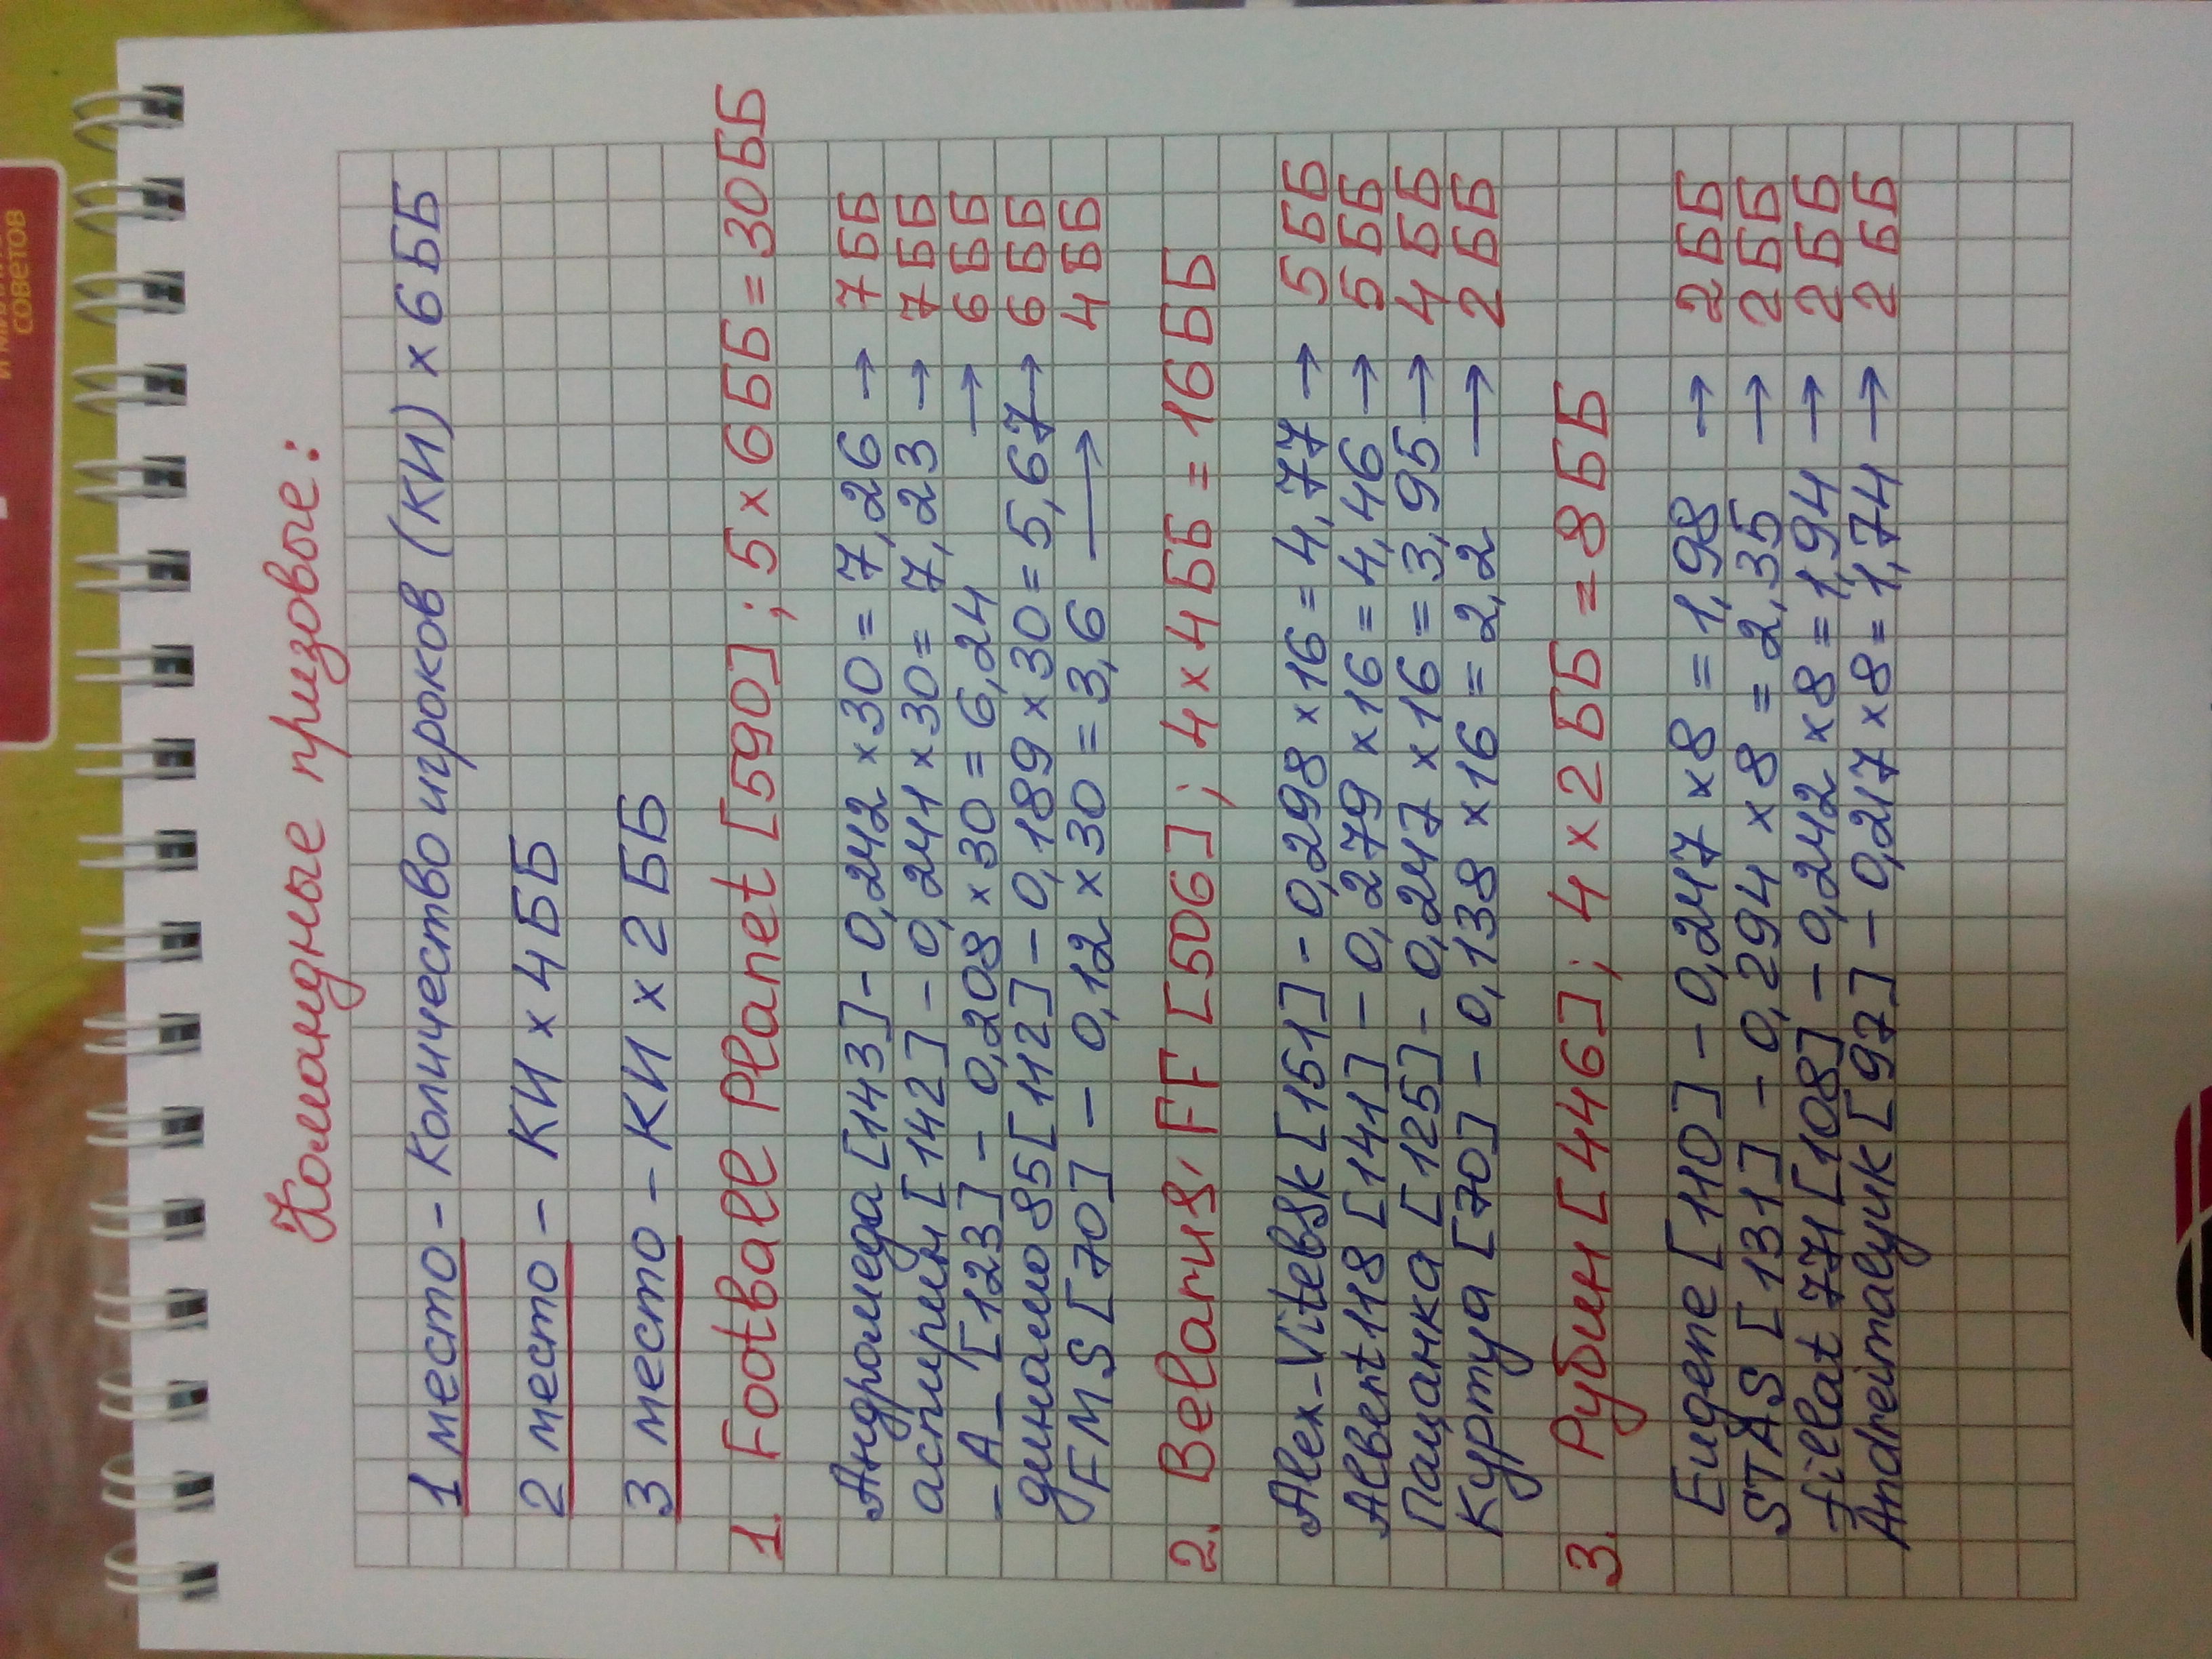 СОВЕТОВ
Командные призовые:
1 место - Количество игроков (КИ) x 6 ББ
2 место - КИ x 4 ББ
3 место - КИ x 2 ББ
1. Football Planet [590]; 5 x 6 ББ = 30 ББ
Андромеда [143] - 0,242 x 30 = 7,26 → 7 ББ
аспирин [142] - 0,241 x 30 = 7,23 → 7 ББ
-A- [123] - 0,208 x 30 = 6,24 → 6 ББ
динамо85 [112] - 0,189 x 30 = 5,67 → 6 ББ
FMS [70] - 0,12 x 30 = 3,6 → 4 ББ
2. Belarus, FF [506]; 4 x 4 ББ = 16 ББ
Alex-Vitebsk [151] - 0,298 x 16 = 4,77 → 5 ББ
Albert118 [141] - 0,279 x 16 = 4,46 → 5 ББ
Пацанка [125] - 0,247 x 16 = 3,95 → 4 ББ
Куртуа [70] - 0,138 x 16 = 2,2 → 2 ББ
3. Рубин [446]; 4 x 2 ББ = 8 ББ
Eugene [110] - 0,247 x 8 = 1,98 → 2 ББ
STAS [131] - 0,294 x 8 = 2,35 → 2 ББ
fillat 771 [108] - 0,242 x 8 = 1,94 → 2 ББ
Andreimalyuk [97] - 0,217 x 8 = 1,74 → 2 ББ